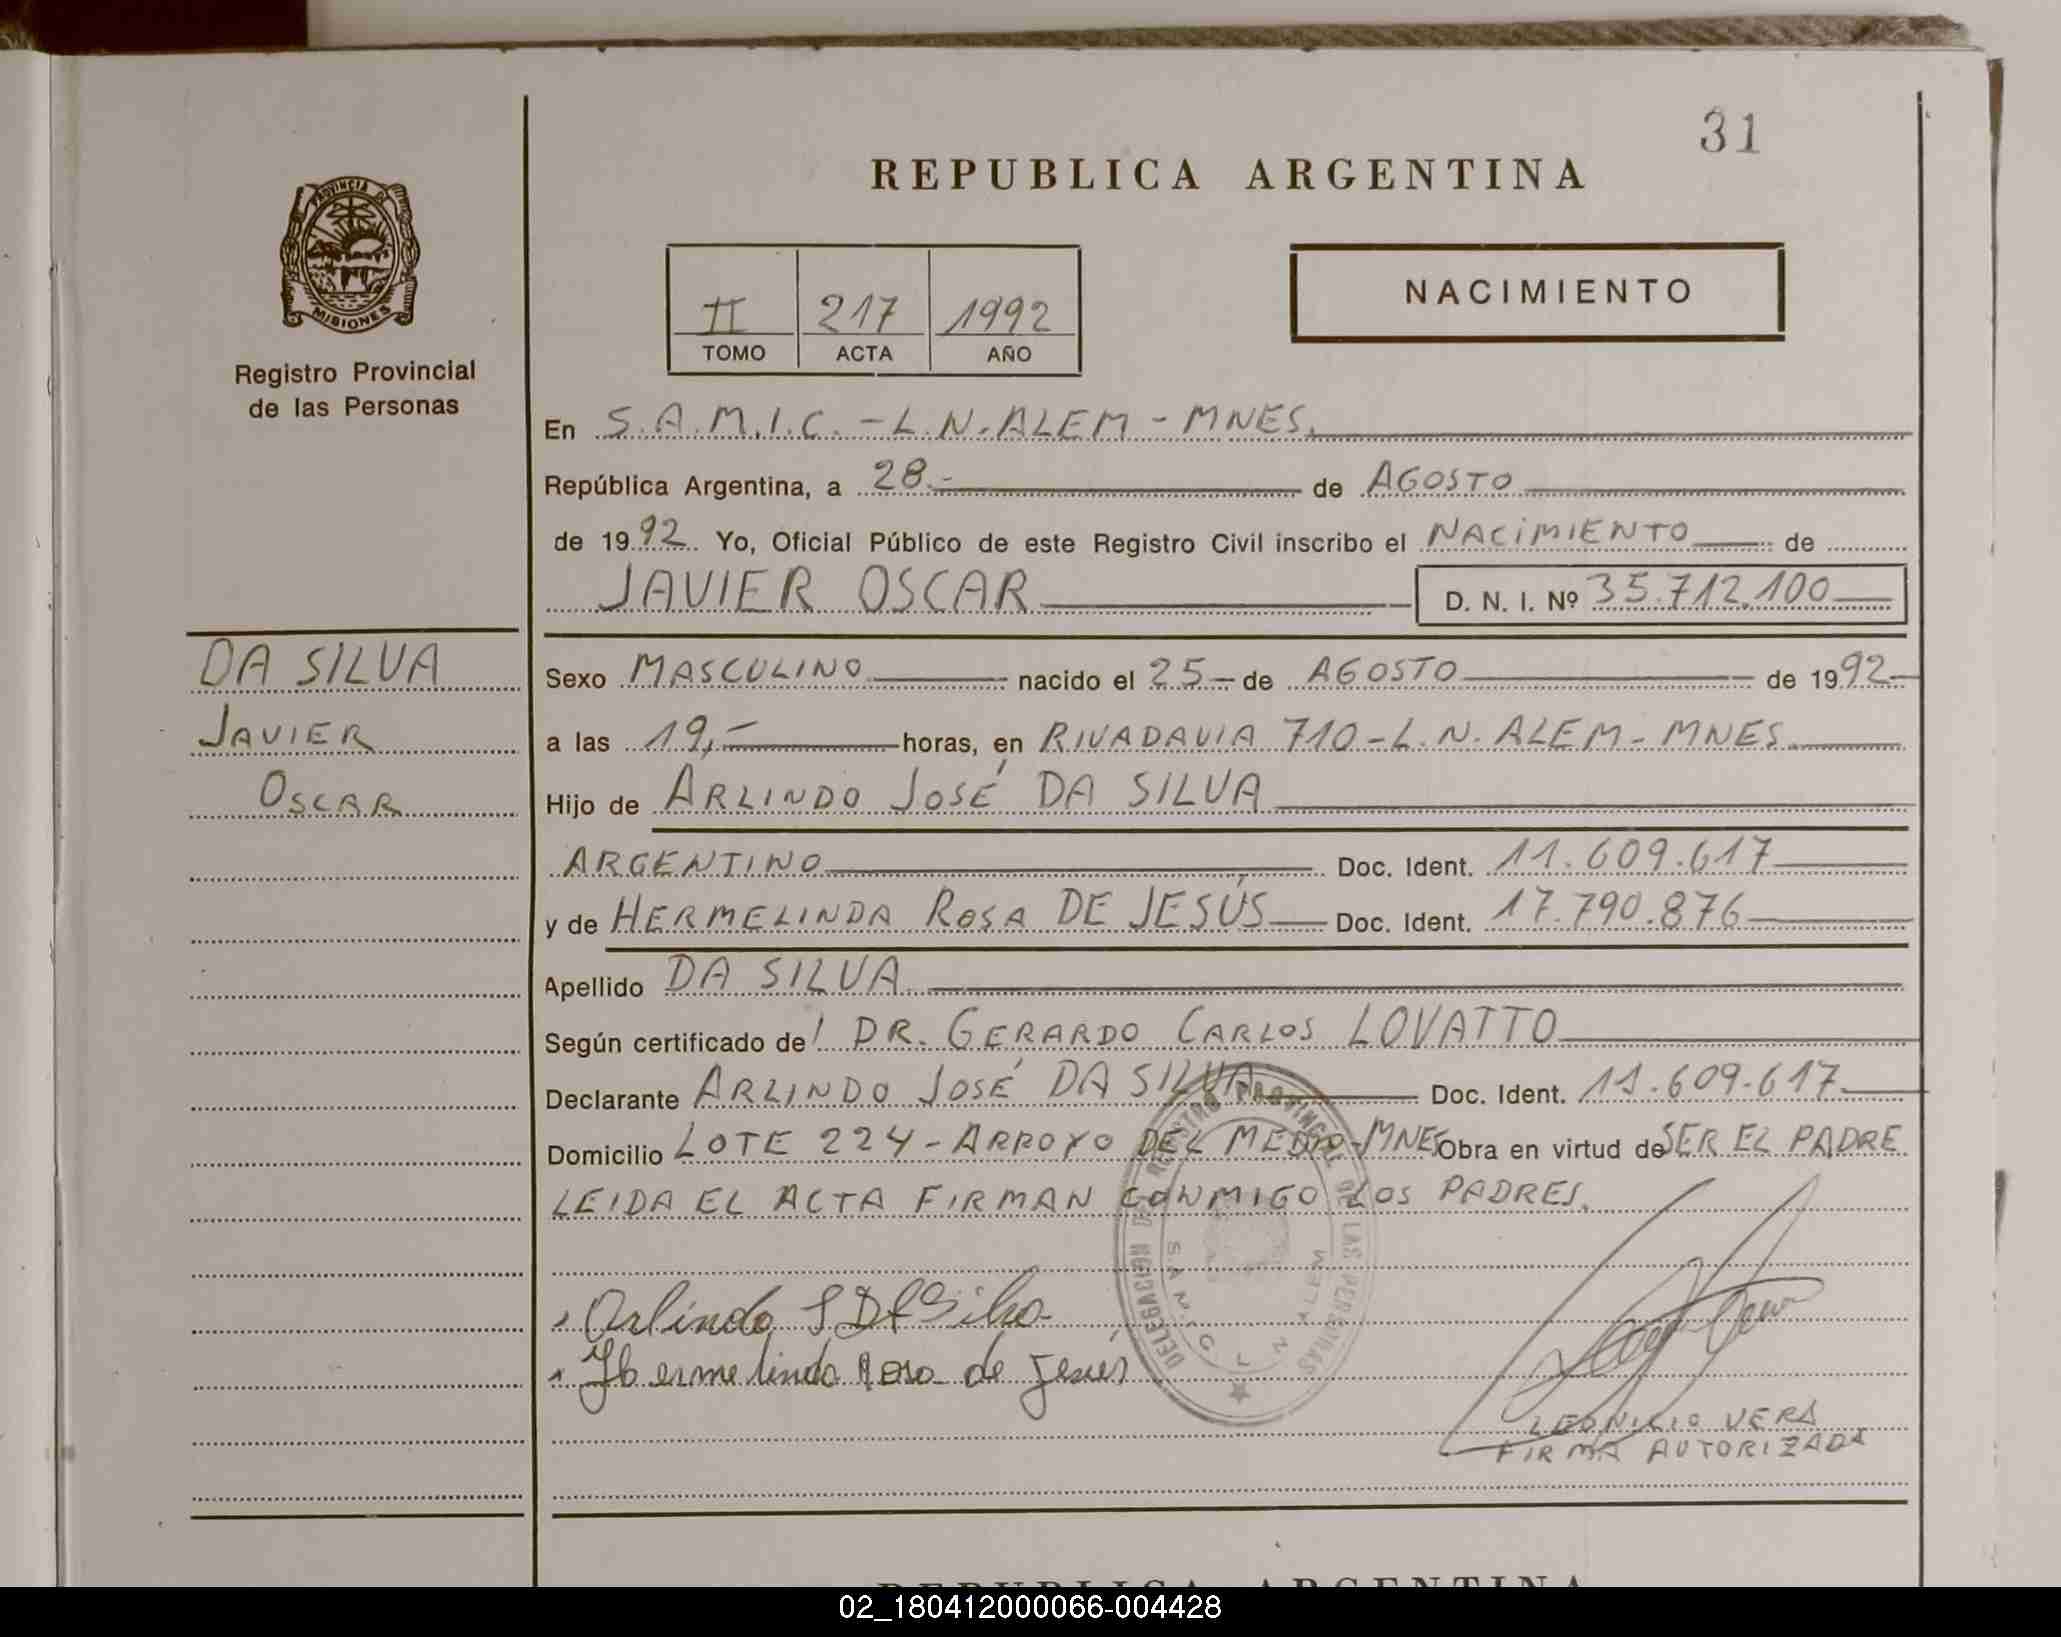 31
REPUBLICA ARGENTINA
PROVINCIA DE
MISIONES
Registro Provincial
de las Personas
II 217 1992
TOMO ACTA AÑO
NACIMIENTO
En S.A.M.I.C. - L.N. ALEM - MNES.
República Argentina, a 28.- de AGOSTO
de 1992 Yo, Oficial Público de este Registro Civil inscribo el NACIMIENTO de
JAVIER OSCAR D. N. I. Nº 35.712.100
DA SILVA
JAVIER
OSCAR
Sexo MASCULINO nacido el 25 de AGOSTO de 1992
a las 19,- horas, en RIVADAVIA 710 - L.N. ALEM - MNES.
Hijo de ARLINDO JOSÉ DA SILVA
ARGENTINO Doc. Ident. 11.609.617
y de HERMELINDA ROSA DE JESÚS Doc. Ident. 17.790.876
Apellido DA SILVA
Según certificado del DR. GERARDO CARLOS LOVATTO
Declarante ARLINDO JOSÉ DA SILVA Doc. Ident. 11.609.617
Domicilio LOTE 224 - ARROYO DEL MEDIO - MNES Obra en virtud de SER EL PADRE
LEIDA EL ACTA FIRMAN CONMIGO LOS PADRES.
DELEGACION DEL REGISTRO PROVINCIAL DE LAS PERSONAS
L N ALEM
Arlindo J DA Silva
Hermelinda Rosa de Jesús
LEONICIO VERA
FIRMA AUTORIZADA
REPUBLICA ARGENTINA
02_180412000066-004428